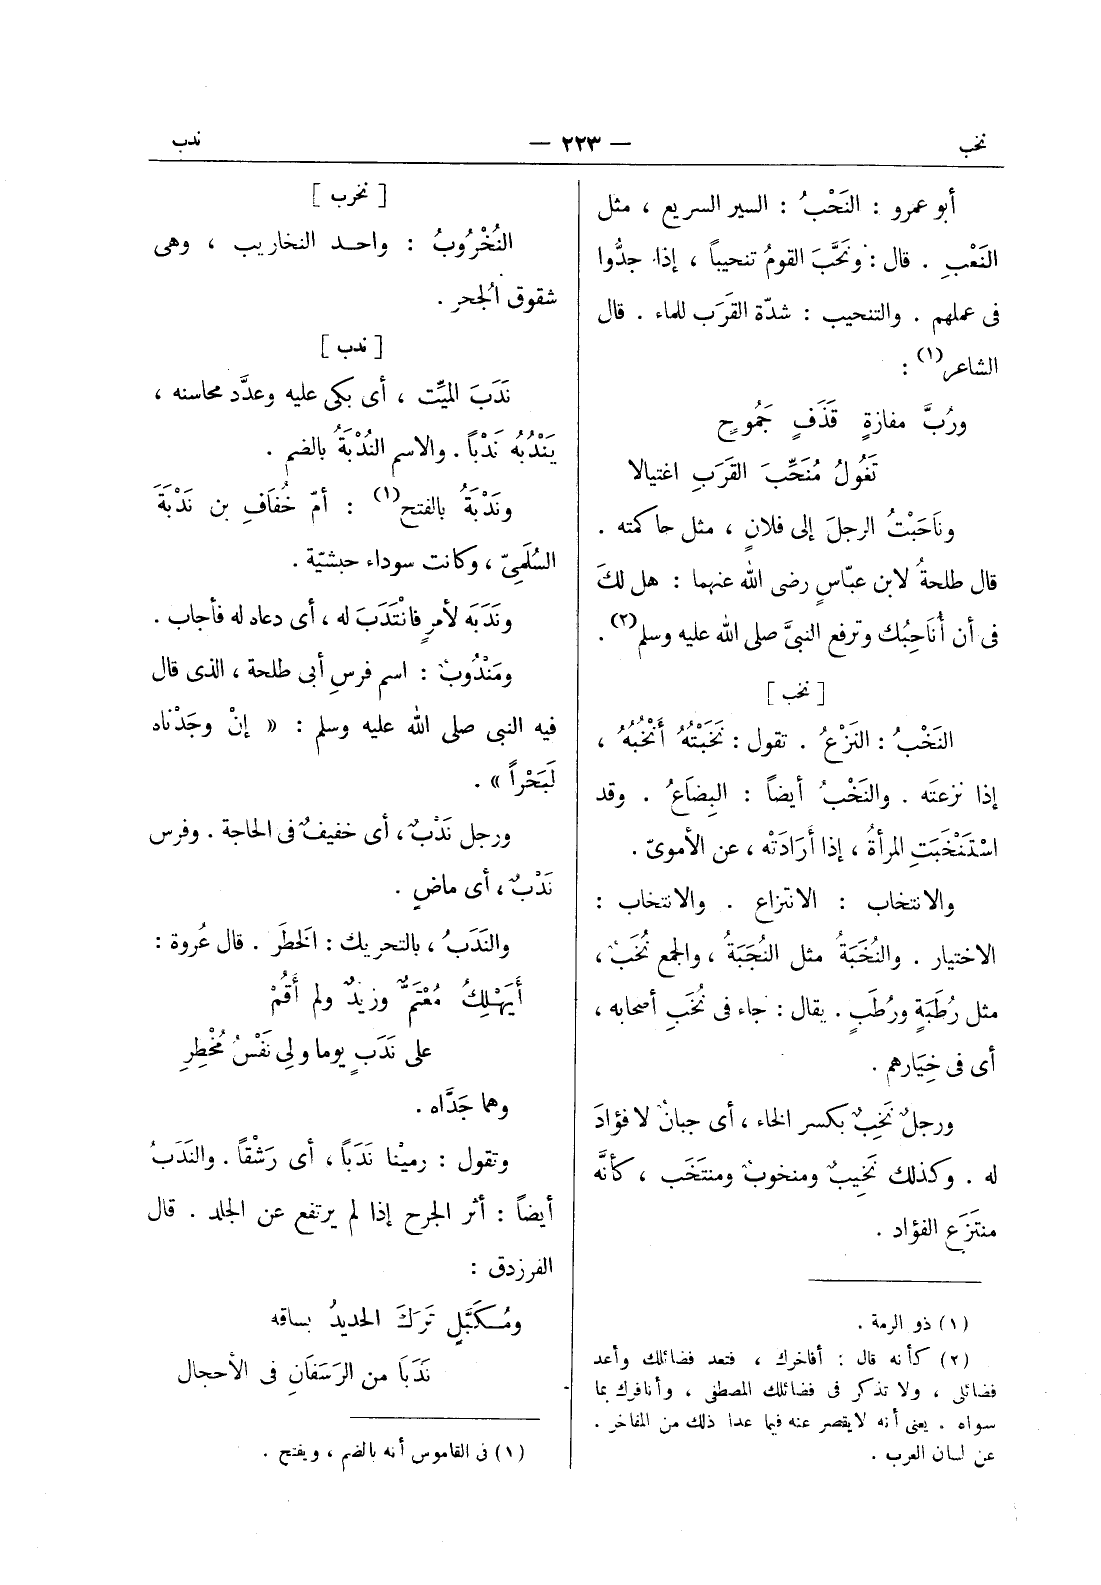 نخب
— ٢٢٣ —
ندب
أبو عمرو : النَحْبُ : السير السريع ، مثل
النَعْبِ . قال : ونَحَّبَ القومُ تنحيباً ، إذا جدُّوا
فى عملهم . والتنحيب : شدّة القَرَب للماء . قال
الشاعر(١) :
ورُبَّ مفازةٍ قَذَفٍ جَمُوحٍ
تَغُولُ مُنَحِّبَ القَرَبِ اغتيالا
ونَاحَبْتُ الرجلَ إلى فلانٍ ، مثل حاكمته .
قال طلحةُ لابن عبّاسٍ رضى الله عنهما : هل لكَ
فى أن أُنَاحِبُك وترفع النبىَّ صلى الله عليه وسلم(٢) .
[ نخب ]
النَخْبُ : النَزْعُ . تقول : نَخَبْتُهُ أَنْخُبُهُ ،
إذا نزعتَه . والنَخْبُ أيضاً : البِضَاعُ . وقد
اسْتَنْخَبَتِ المرأةُ ، إذا أَرَادَتْه ، عن الأموىّ .
والانتخاب : الانتزاع . والانتخاب :
الاختيار . والنُخَبَةُ مثل النُجَبَةُ ، والجمع نُخَبٌ ،
مثل رُطَبَةٍ ورُطَبٍ . يقال : جاء فى نُخَبِ أصحابه ،
أى فى خِيَارهم .
ورجلٌ نَخِبٌ بكسر الخاء ، أى جبانٌ لا فؤادَ
له . وكذلك نَخِيبٌ ومنخوبٌ ومنتَخَب ، كأنَّه
منتَزَع الفؤاد .
(١) ذو الرمة .
(٢) كأنه قال : أفاخرك ، فتعد فضائلك وأعد
فضائلى ، ولا تذكر فى فضائلك المصطفى ، وأنافرك بما
سواه . يعنى أنه لا يقصر عنه فيما عدا ذلك من المفاخر .
عن لسان العرب .
[ نخرب ]
النُخْرُوبُ : واحد النخاريب ، وهى
شقوق الجُحر .
[ ندب ]
نَدَبَ الميِّت ، أى بكى عليه وعدَّد محاسنه ،
يَنْدُبُهُ نَدْباً . والاسم النُدْبَةُ بالضم .
ونَدْبَةُ بالفتح(١) : أمّ خُفَافِ بن نَدْبَةَ
السُلَمِىّ ، وكانت سوداء حبشيّة .
ونَدَبَه لأمرٍ فانْتَدَبَ له ، أى دعاه له فأجاب .
ومَنْدُوبٌ : اسم فرسِ أبى طلحة ، الذى قال
فيه النبى صلى الله عليه وسلم : « إنْ وجَدْناه
لَبَحْراً » .
ورجل نَدْبٌ ، أى خفيفٌ فى الحاجة . وفرس
نَدْبٌ ، أى ماضٍ .
والنَدَبُ ، بالتحريك : الخطَر . قال عُروة :
أَيَهْلِكُ مُعْتَمٌّ وزيدٌ ولم أَقُمْ
على نَدَبٍ يوما ولِى نَفْسُ مُخْطِرِ
وهما جَدَّاه .
وتقول : رمينْا نَدَباً ، أى رَشْقاً . والنَدَبُ
أيضاً : أثر الجرح إذا لم يرتفع عن الجلد . قال
الفرزدق :
ومُكَبَّلٍ تَرَكَ الحديدُ بساقه
نَدَبَا من الرَسَفَانِ فى الأحجال
(١) فى القاموس أنه بالضم ، ويفتح .